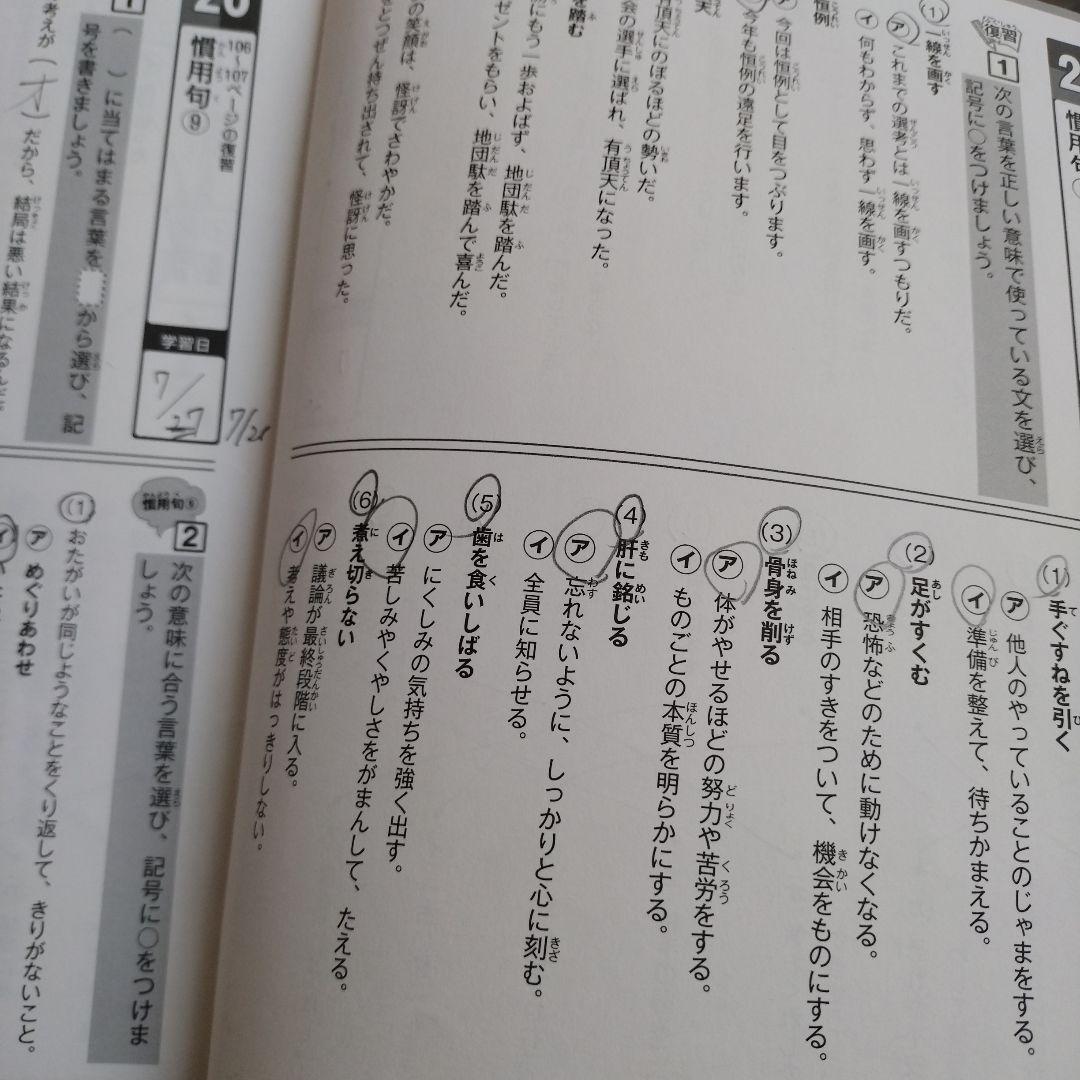 2
慣用句
復習
1
次の言葉を正しい意味で使っている文を選び、
記号に○をつけましょう。
(1) 一線を画す
ア これまでの選考とは一線を画すつもりだ。
イ 何もわからず、思わず一線を画す。
恒例
ア 今回は恒例として目をつぶります。
今年も恒例の遠足を行います。
天
有頂天にのぼるほどの勢いだ。
会の選手に選ばれ、有頂天になった。
を踏む
にもう一歩およばず、地団駄を踏んだ。
ゼントをもらい、地団駄を踏んで喜んだ。
の笑顔は、怪訝でさわやかだ。
とつぜん持ち出されて、怪訝に思った。
(1) 手ぐすねを引く
ア 他人のやっていることのじゃまをする。
イ 準備を整えて、待ちかまえる。
(2) 足がすくむ
ア 恐怖などのために動けなくなる。
イ 相手のすきをついて、機会をものにする。
(3) 骨身を削る
ア 体がやせるほどの努力や苦労をする。
イ ものごとの本質を明らかにする。
(4) 肝に銘じる
ア 忘れないように、しっかりと心に刻む。
イ 全員に知らせる。
(5) 歯を食いしばる
ア にくしみの気持ちを強く出す。
イ 苦しみやくやしさをがまんして、たえる。
(6) 煮え切らない
ア 議論が最終段階に入る。
イ 考えや態度がはっきりしない。
20
106~107ページの復習
慣用句⑨
学習日
7/27
7/28
1
( )に当てはまる言葉を から選び、記
号を書きましょう。
考えが(オ)だから、結局は悪い結果になるんだ。
慣用句⑨
2
次の意味に合う言葉を選び、記号に○をつけま
しょう。
(1) おたがいが同じようなことをくり返して、きりがないこと。
ア めぐりあわせ
イ